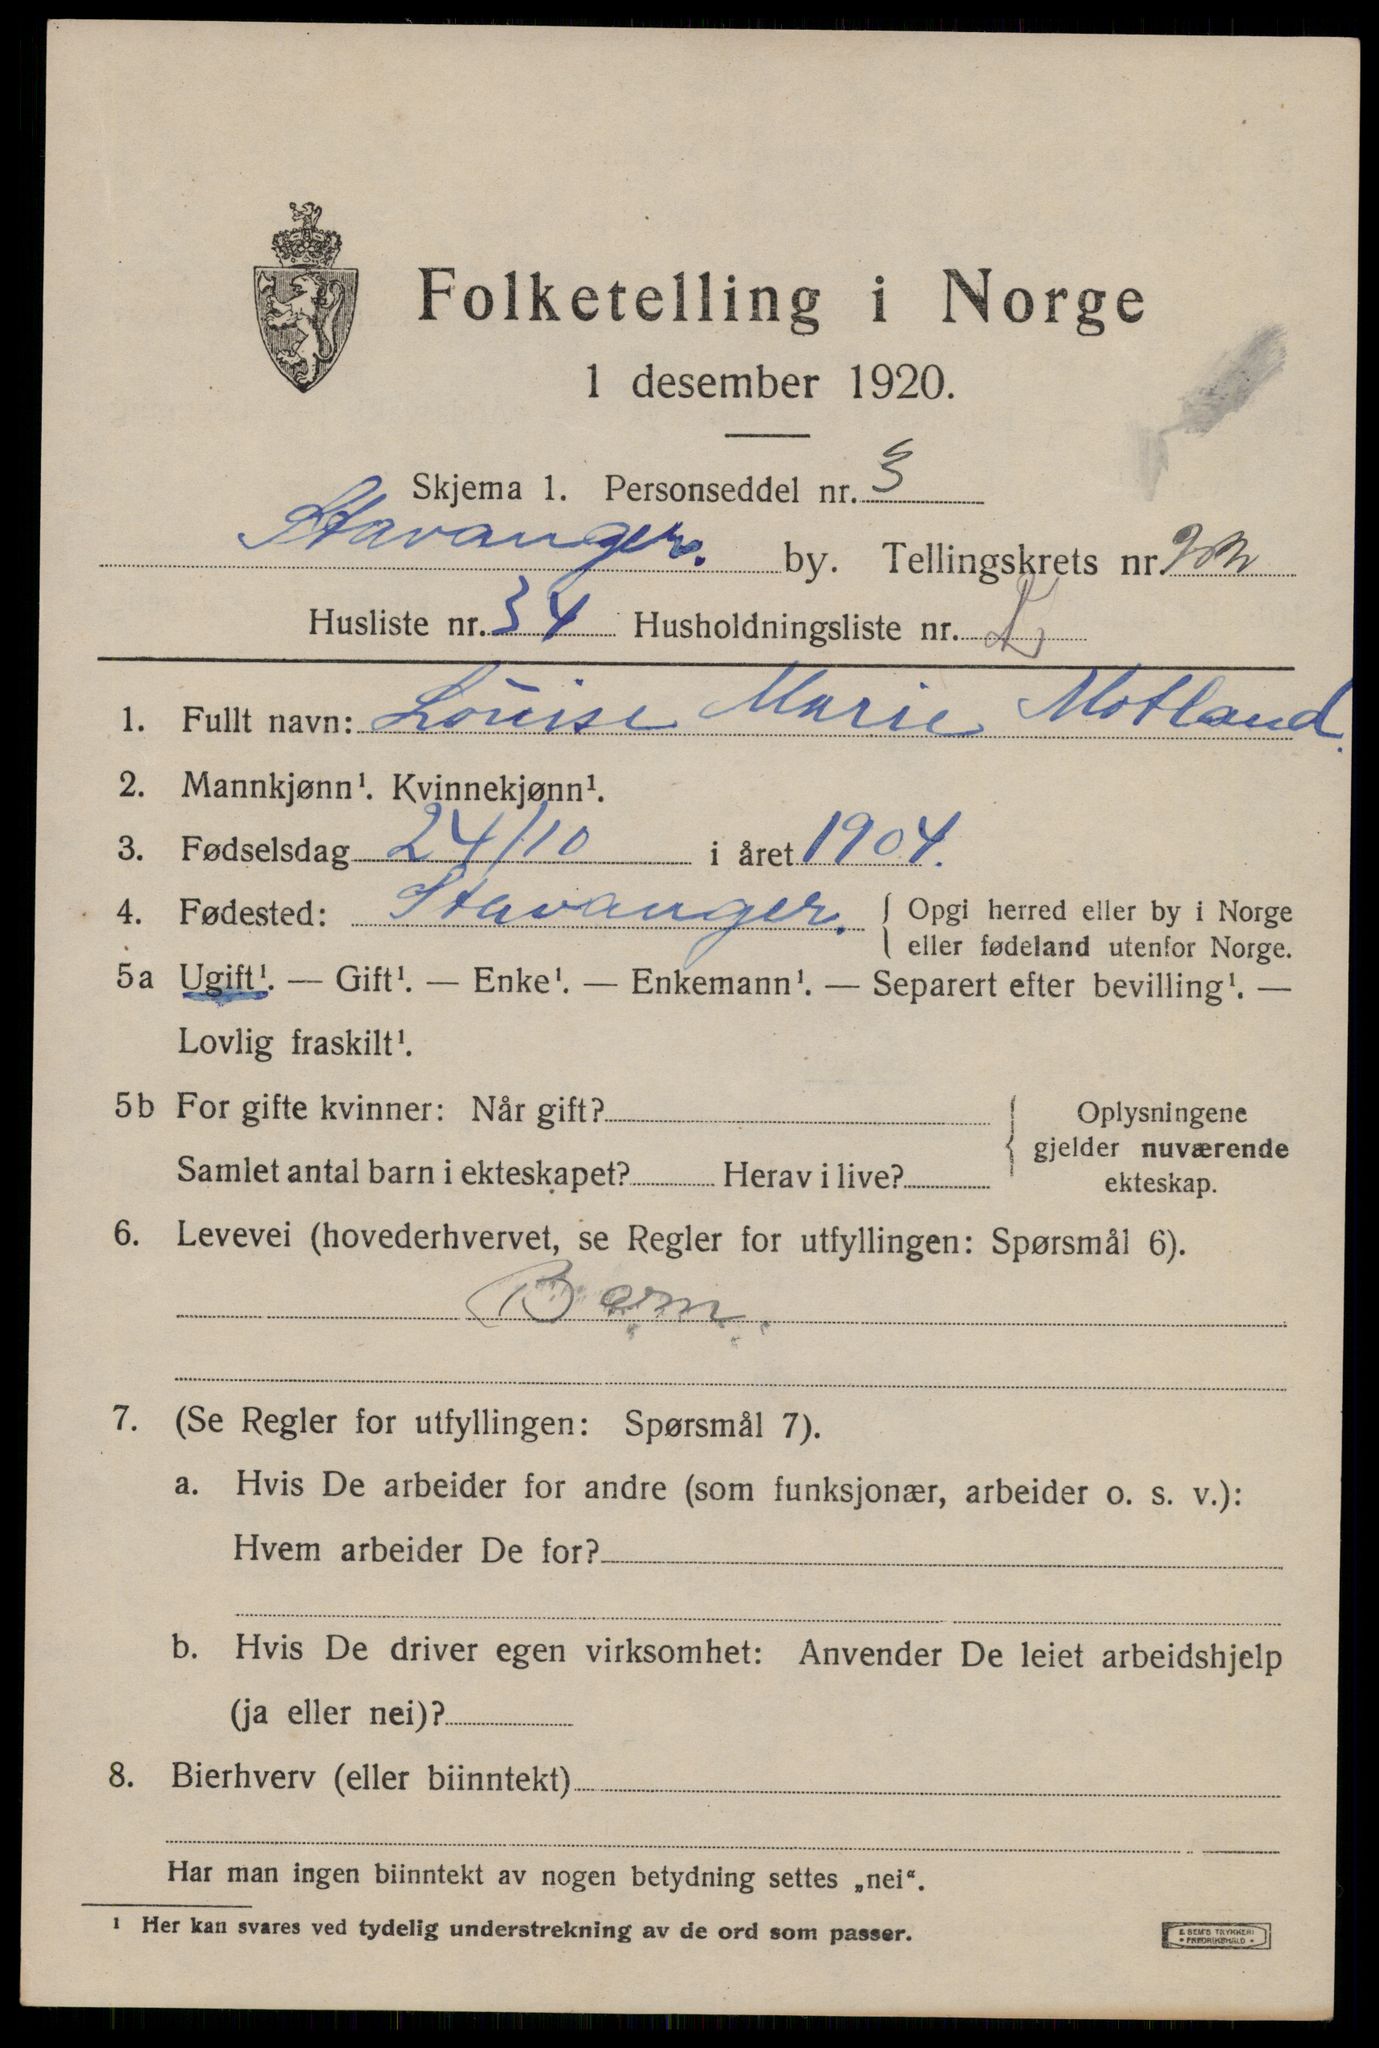 Folketelling i Norge
1 desember 1920.
Skjema 1. Personseddel nr. 3
Stavanger. by. Tellingskrets nr.
Husliste nr. 34 Husholdningsliste nr.
1. Fullt navn: Louise Marie Motland.
2. Mannkjønn¹. Kvinnekjønn¹.
3. Fødselsdag 24/10 i året 1904.
4. Fødested: Stavanger. { Opgi herred eller by i Norge
eller fødeland utenfor Norge.
5a Ugift¹. — Gift¹. — Enke¹. — Enkemann¹. — Separert efter bevilling¹. —
Lovlig fraskilt¹.
5b For gifte kvinner: Når gift? { Oplysningene
gjelder nuværende
Samlet antal barn i ekteskapet? Herav i live? ekteskap.
6. Levevei (hovederhvervet, se Regler for utfyllingen: Spørsmål 6).
Barn.
7. (Se Regler for utfyllingen: Spørsmål 7).
a. Hvis De arbeider for andre (som funksjonær, arbeider o. s. v.):
Hvem arbeider De for?
b. Hvis De driver egen virksomhet: Anvender De leiet arbeidshjelp
(ja eller nei)?
8. Bierhverv (eller biinntekt)
Har man ingen biinntekt av nogen betydning settes „nei“.
¹ Her kan svares ved tydelig understrekning av de ord som passer.
E. SEM'S TRYKKERI
• FREDRIKSHALD •